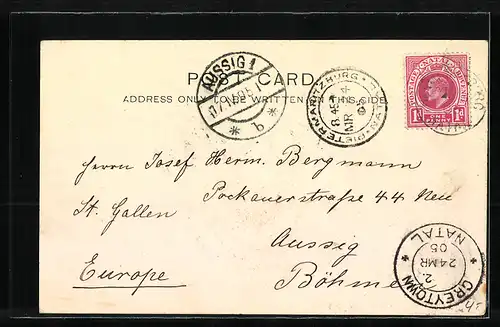 POST CARD
ADDRESS ONLY TO BE WRITTEN ON THIS SIDE.
AUSSIG 1
* b *
PIETERMARITZBURG • NATAL
MR
POSTAGE NATAL REVENUE
ONE PENNY
1d 1d
Herrn Josef Herm. Bergmann
Pockauerstraße 44 Neu
St. Gallen
Aussig
Europe
Böhme
GREYTOWN
* NATAL *
24 MR
05